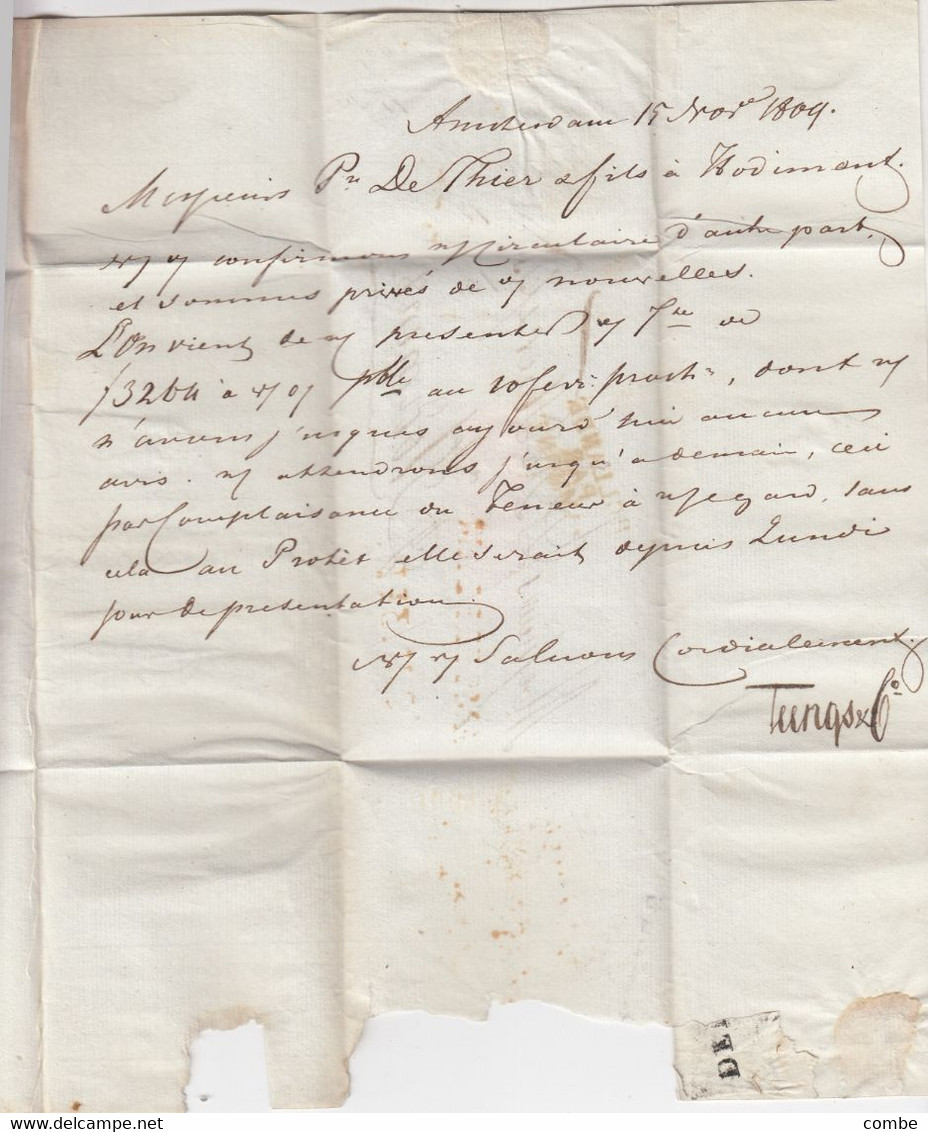 Amsterdam 15 Nov.e 1809.
Messieurs Pre De Thier & fils à Hodimont.
confirmons circulaire d'autre part,
et sommes privés de vos nouvelles.
L'On vient de ns presenter de
f3264 à pble au 10 fevr: proch:n, dont ns
n'avons jusques aujourd'hui aucun
avis. ns attendrons jusqu'a demain, ceci
par Complaisance du Teneur à n/egard, sans
cela au Protêt elle serait depuis Lundi
jour de presentation.
Saluons Cordialement.
Tungs & Co
DEL
delcampe.net
combe